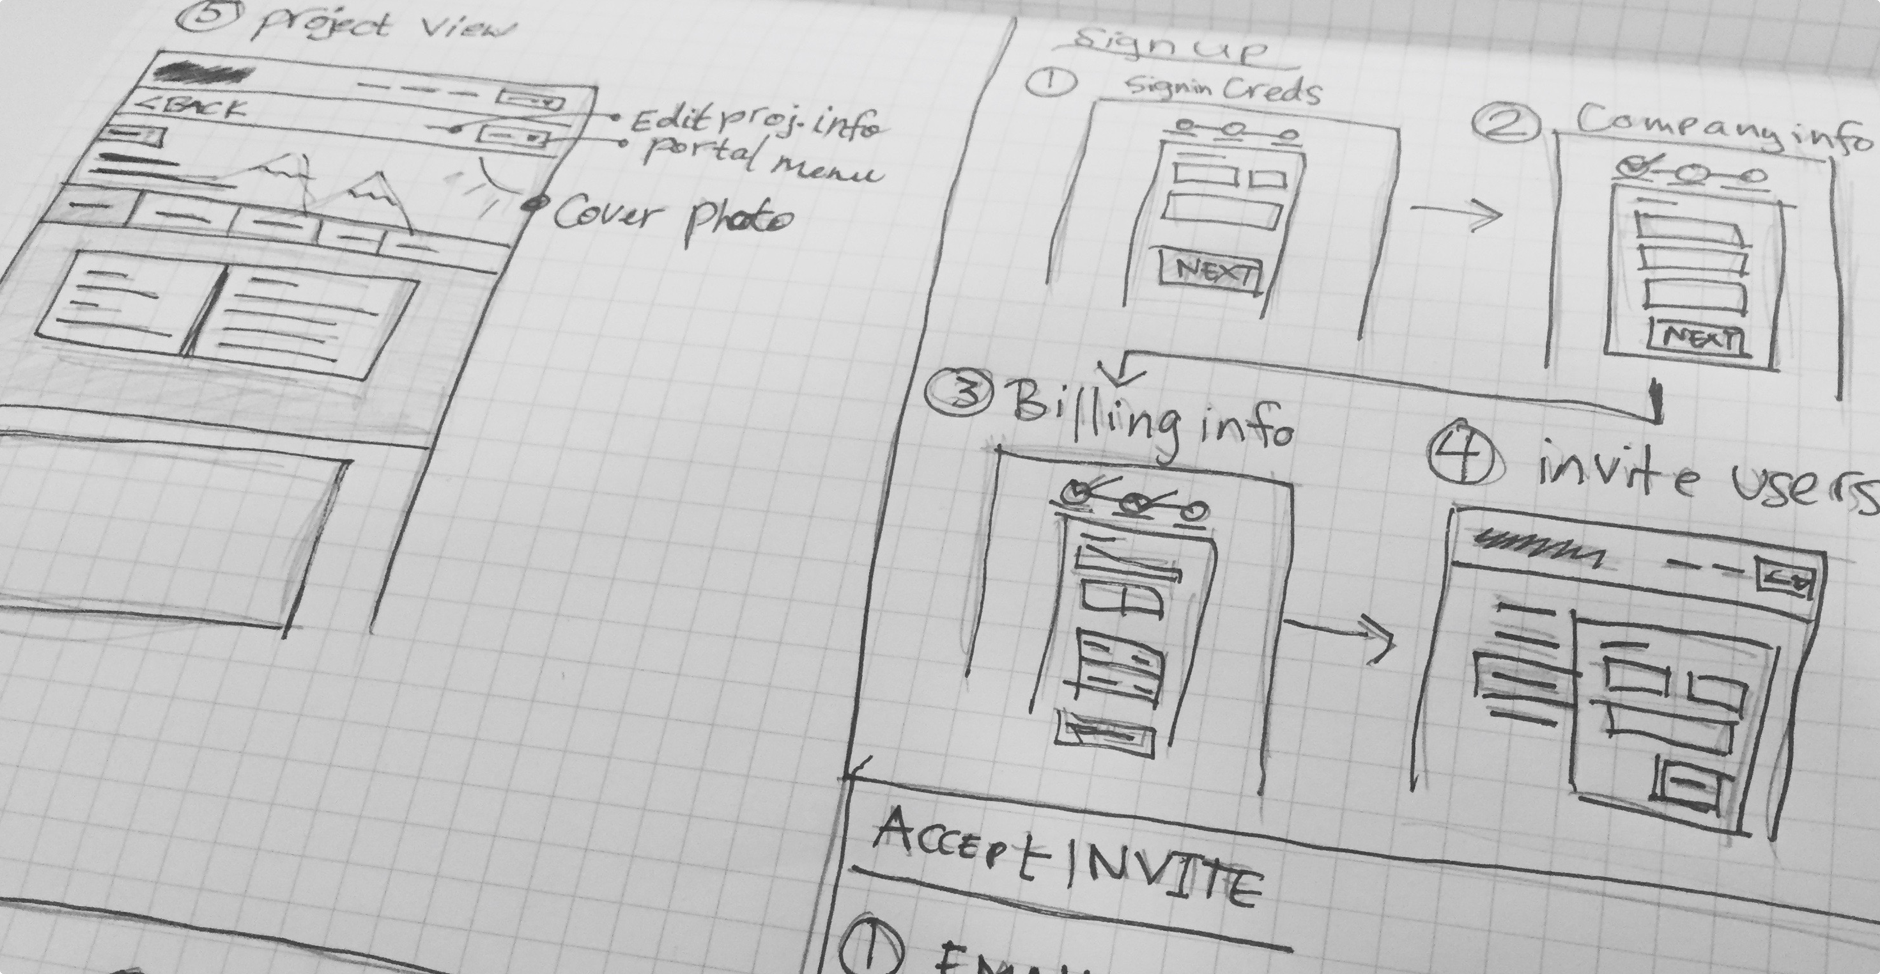 ⑤ project view
<BACK
Edit proj. info
portal menu
Cover photo
Sign up
① Signin Creds
NEXT
② Company info
NEXT
③ Billing info
④ invite users
Accept INVITE
①